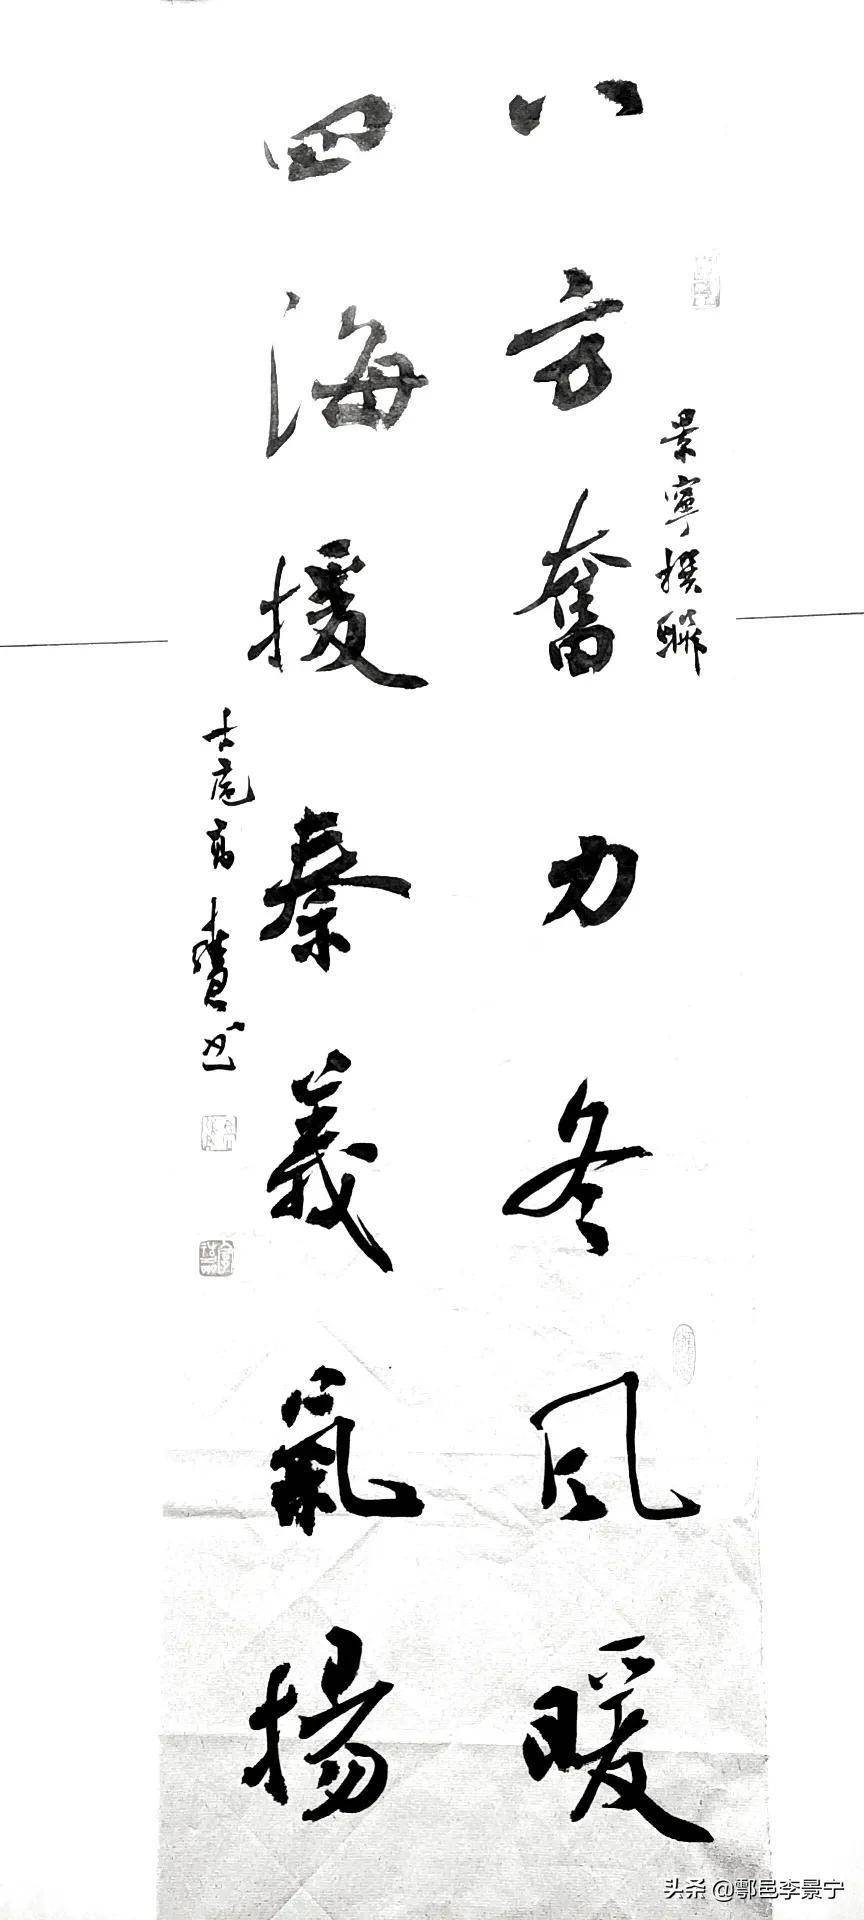 八方奮力冬风暖
景寧撰聯
四海援秦義氣揚
书
头条 @鄠邑李景宁